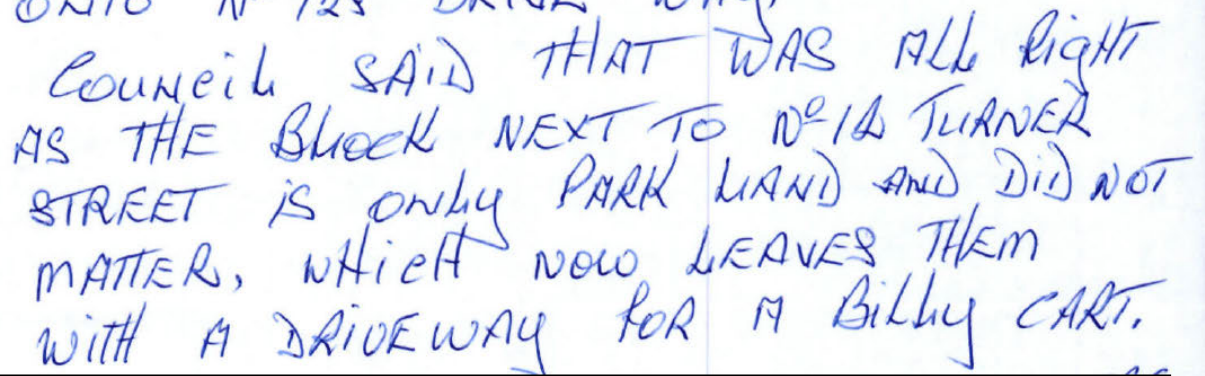 ONTO Nº DRIVE WAY.
COUNCIL SAID THAT WAS ALL RIGHT
AS THE BLOCK NEXT TO Nº TURNER
STREET IS ONLY PARK LAND AND DID NOT
MATTER, WHICH NOW LEAVES THEM
WITH A DRIVEWAY FOR A BILLY CART.